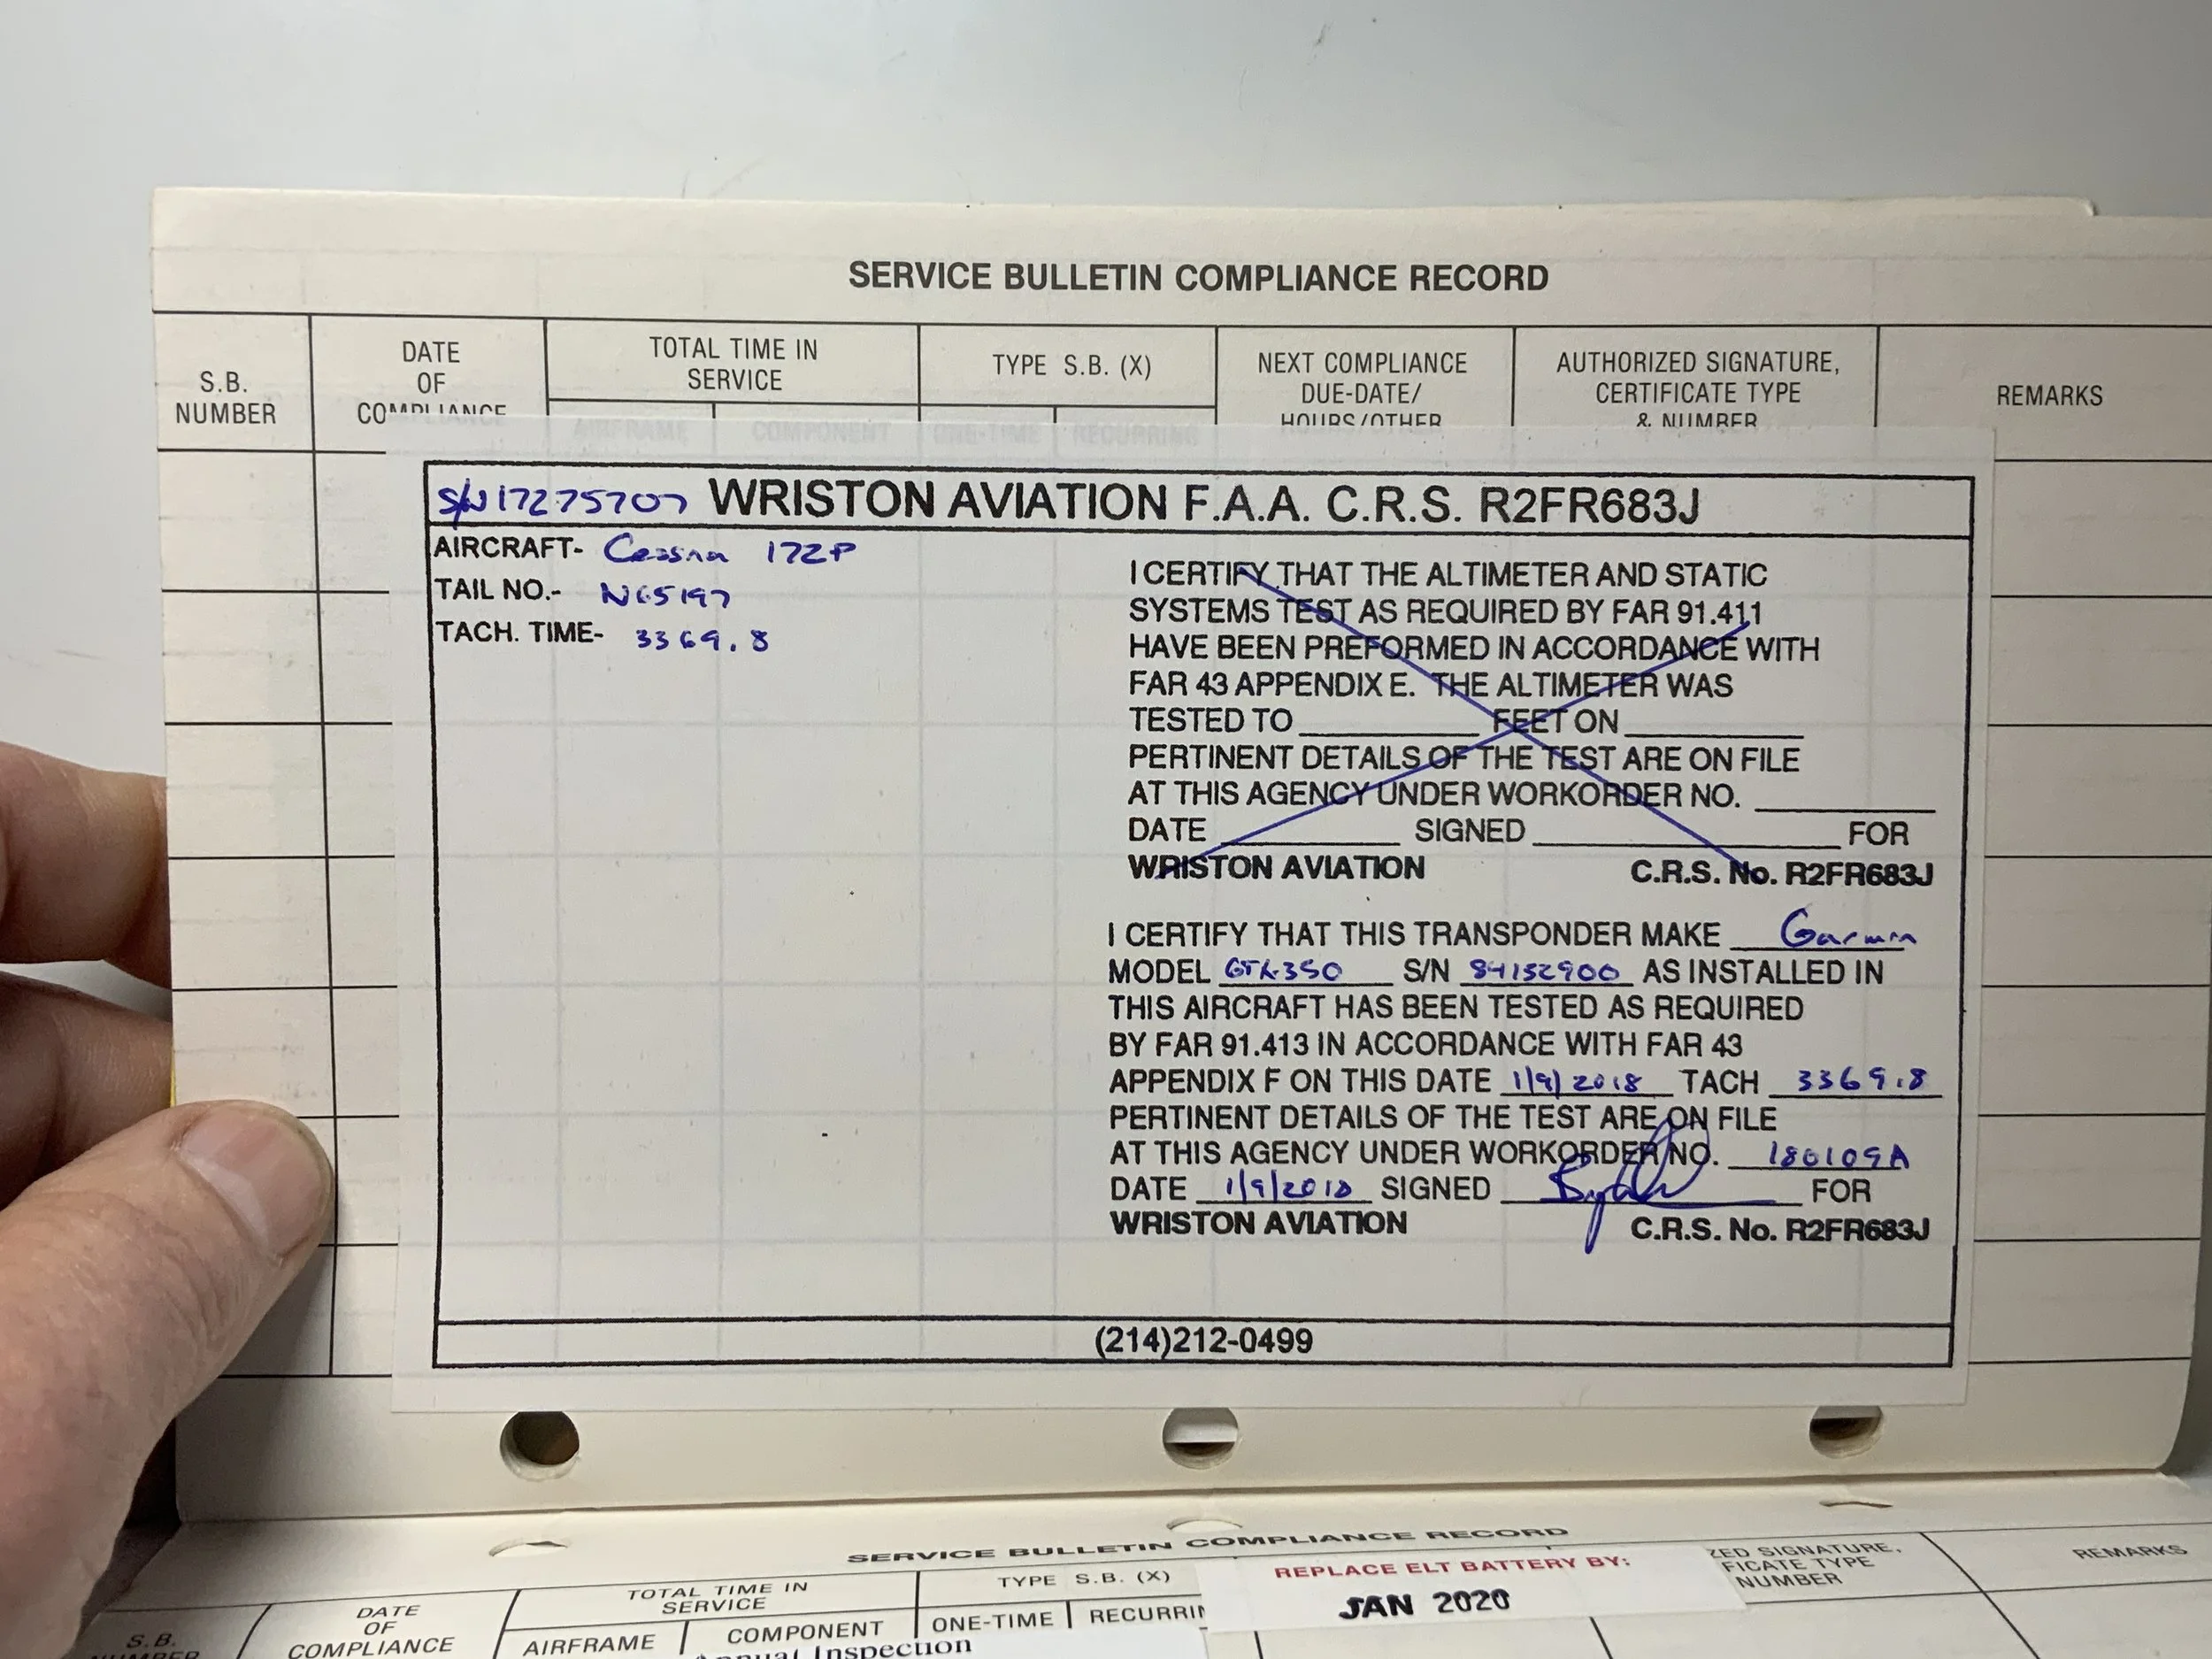 SERVICE BULLETIN COMPLIANCE RECORD
S.B. NUMBER
DATE OF COMPLIANCE
TOTAL TIME IN SERVICE
AIRFRAME
COMPONENT
TYPE S.B. (X)
ONE-TIME
RECURRING
NEXT COMPLIANCE DUE-DATE/ HOURS/OTHER
AUTHORIZED SIGNATURE, CERTIFICATE TYPE & NUMBER
REMARKS
S/N 17275707 WRISTON AVIATION F.A.A. C.R.S. R2FR683J
AIRCRAFT- Cessna 172P
TAIL NO.- N65197
TACH. TIME- 3369.8
I CERTIFY THAT THE ALTIMETER AND STATIC
SYSTEMS TEST AS REQUIRED BY FAR 91.411
HAVE BEEN PREFORMED IN ACCORDANCE WITH
FAR 43 APPENDIX E. THE ALTIMETER WAS
TESTED TO FEET ON
PERTINENT DETAILS OF THE TEST ARE ON FILE
AT THIS AGENCY UNDER WORKORDER NO.
DATE SIGNED FOR
WRISTON AVIATION C.R.S. No. R2FR683J
I CERTIFY THAT THIS TRANSPONDER MAKE Garmin
MODEL GTX-350 S/N 84152900 AS INSTALLED IN
THIS AIRCRAFT HAS BEEN TESTED AS REQUIRED
BY FAR 91.413 IN ACCORDANCE WITH FAR 43
APPENDIX F ON THIS DATE 1/9/2018 TACH 3369.8
PERTINENT DETAILS OF THE TEST ARE ON FILE
AT THIS AGENCY UNDER WORKORDER NO. 180109A
DATE 1/9/2018 SIGNED FOR
WRISTON AVIATION C.R.S. No. R2FR683J
(214)212-0499
SERVICE BULLETIN COMPLIANCE RECORD
S.B. NUMBER
DATE OF COMPLIANCE
TOTAL TIME IN SERVICE
AIRFRAME
COMPONENT
TYPE S.B. (X)
ONE-TIME
RECURRIN
REPLACE ELT BATTERY BY:
JAN 2020
ZED SIGNATURE,
FICATE TYPE
NUMBER
REMARKS
nnual Inspection